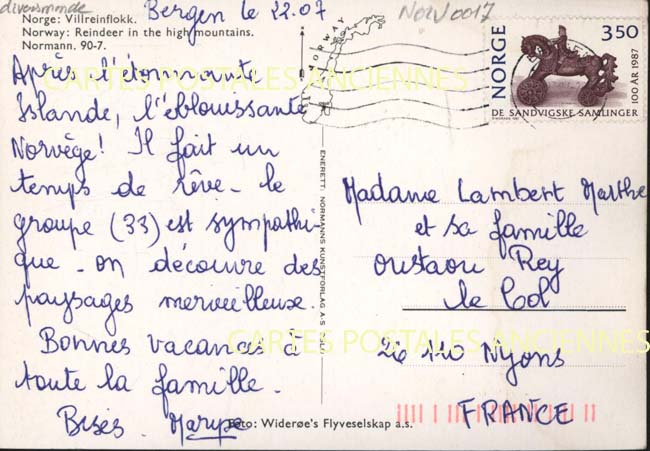 divers monde
Norge: Villreinflokk.
Norway: Reindeer in the high mountains.
Normann. 90-7.
Bergen le 22.07
NORV0017
NORWAY
NORGE
350
100 ÅR 1987
DE SANDVIGSKE SAMLINGER
Après l'étonnante
Islande, l'éblouissante
Norvège! Il fait un
temps de rêve - le
groupe (33) est sympathi-
que - on découvre des
paysages merveilleuse.
Bonnes vacances à
toute la famille.
Bises - Maryse
ENERETT: NORMANNS KUNSTFORLAG A.S.
Madame Lambert Marthe
et sa famille
oustaou Rey
le Col
26 110 Nyons
FRANCE
Foto: Widerøe's Flyveselskap a.s.
CARTES POSTALES ANCIENNES
CARTES POSTALES ANCIENNES